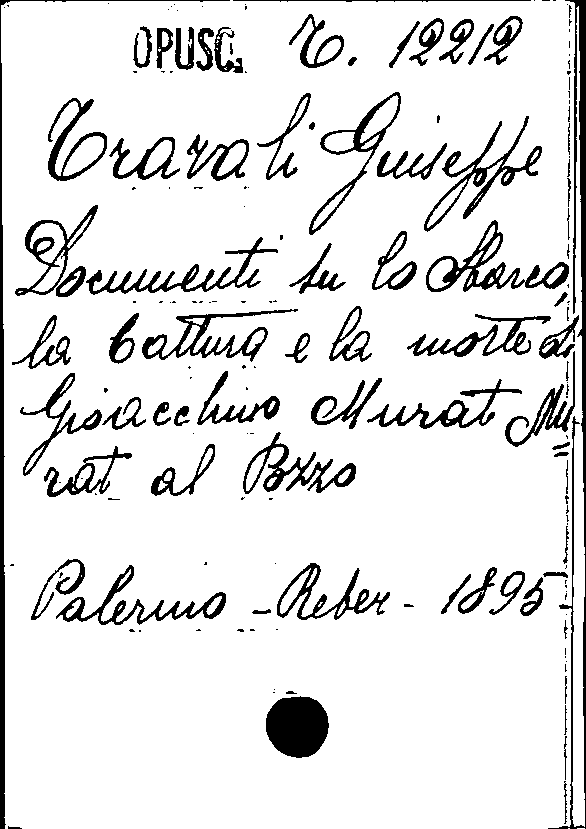 OPUSC. T. 12212
Travali Giuseppe
Documenti su lo sbarco,
la cattura e la morte di
Gioacchino Murat Mu=
rat al Pizzo
Palermo - Reber - 1895